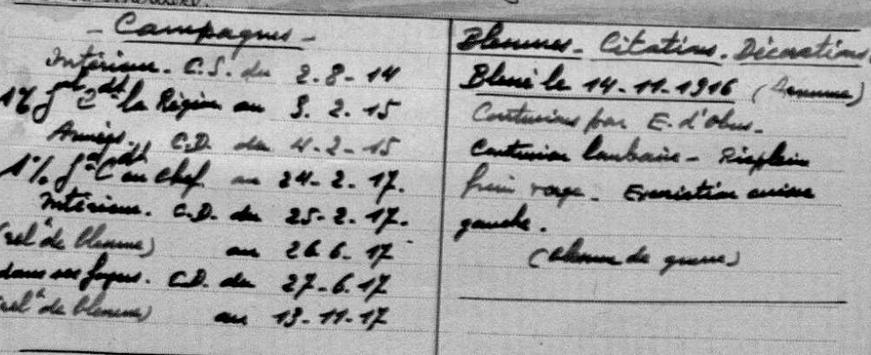 - Campagnes -
Intérieur. C.S. du 2-8-14
la Région au 3.2.15
Armées. C.D. du 4-2-15
en chef au 24-2.17.
Intérieur. C.D. du 25-2-17.
de blessure) au 26 6-17
dans ses foyers. C.D. du 27-6.17
de blessure) au 13-11-17
Blessures - Citations. Décorations.
Blessé le 14-11-1916 (Somme)
Contusions par E. d'obus.
Contusion lombaire -
gauche.
(blessure de guerre)